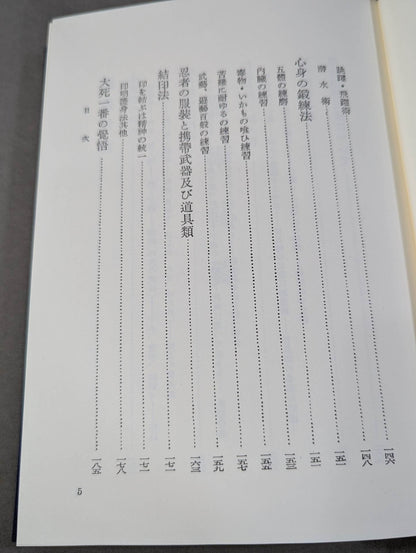 跳躍・飛翔術……一四六
潜水術……一四八
心身の鍛練法……一五一
五體の練磨……一五一
内臓の練習……一五三
毒物・いかもの喰ひ練習……一五五
苦痛に耐ゆるの練習……一五七
武藝、遊藝百般の練習……一五九
忍者の服装と携帶武器及び道具類……一六三
結印法……一七一
印を結ぶは精神の統一……一七一
印明護身法其他……一七八
大死一番の覺悟……一八五
目次
5